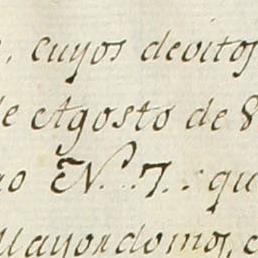 , cuyos devitos
de Agosto de 8
no N. 7. qu
Mayordomos, c